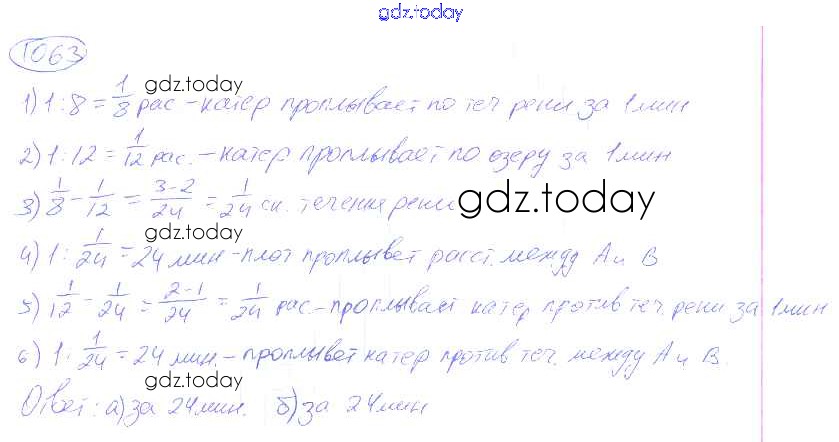 gdz.today
1063
gdz.today
1) 1:8 = 1/8 рас - катер проплывает по теч реки за 1 мин
gdz.today
2) 1:12 = 1/12 рас. - катер проплывает по озеру за 1 мин
3) 1/8 - 1/12 = 3-2/24 = 1/24 ск. течения реки gdz.today
gdz.today
4) 1: 1/24 = 24 мин - плот проплывет расст. между А и В
gdz.today
5) 1/12 - 1/24 = 2-1/24 = 1/24 рас. - проплывает катер против теч. реки за 1 мин
6) 1: 1/24 = 24 мин. - проплывет катер против теч. между А и В.
gdz.today
Ответ: а) за 24 мин. б) за 24 мин